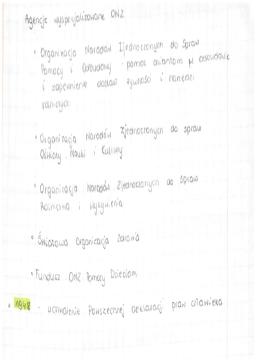 Agencje wyspecjalizowane ONZ
• Organizacja Narodów Zjednoczonych do Spraw
Pomocy i Odbudowy - pomoc
i zapewnienie dostaw żywności i
• Organizacja Narodów Zjednoczonych do spraw
Oświaty, Nauki i Kultury
• Organizacja Narodów Zjednoczonych do Spraw
Rolnictwa i Wyżywienia
• Światowa Organizacja Zdrowia
• Fundusz ONZ Pomocy Dzieciom
• 1948 - uchwalenie Powszechnej deklaracji praw człowieka